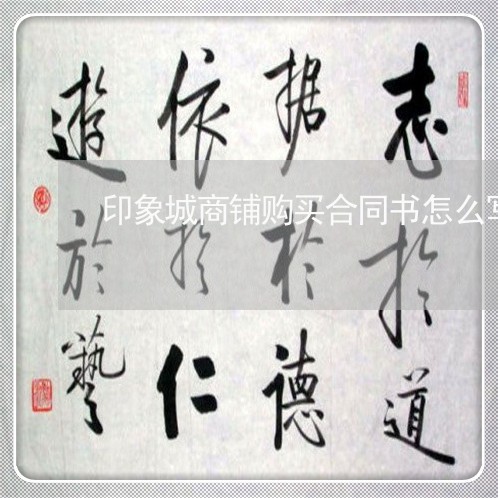 志於道
据於德
依於仁
遊於藝
印象城商铺购买合同书怎么写